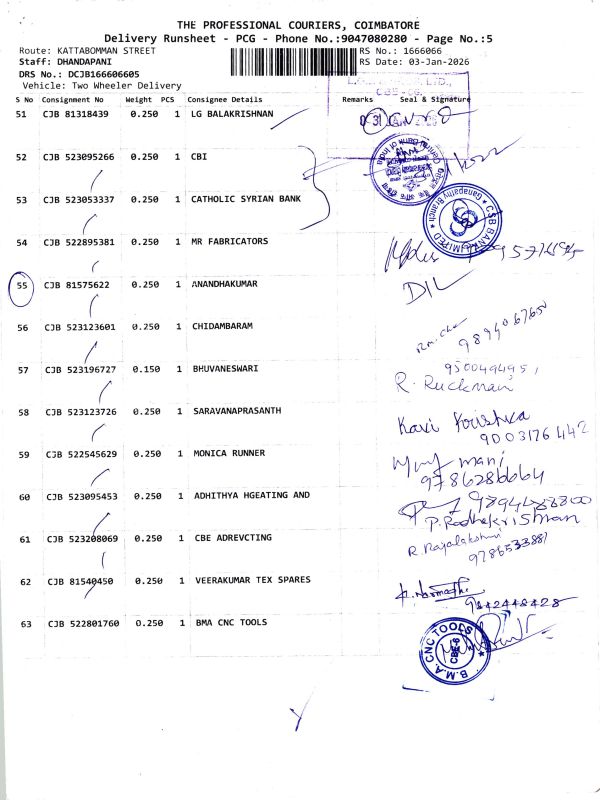 THE PROFESSIONAL COURIERS, COIMBATORE
Delivery Runsheet - PCG - Phone No.:9047080280 - Page No.:5
Route: KATTABOMMAN STREET RS No.: 1666066
Staff: DHANDAPANI RS Date: 03-Jan-2026
DRS No.: DCJB166606605
Vehicle: Two Wheeler Delivery
S No Consignment No Weight PCS Consignee Details Remarks Seal & Signature
51 CJB 81318439 0.250 1 LG BALAKRISHNAN
52 CJB 523095266 0.250 1 CBI
53 CJB 523053337 0.250 1 CATHOLIC SYRIAN BANK
CSB BANK LIMITED
Ganapathy Branch
54 CJB 522895381 0.250 1 MR FABRICATORS
55 CJB 81575622 0.250 1 ANANDHAKUMAR
DIL
56 CJB 523123601 0.250 1 CHIDAMBARAM
989406765
57 CJB 523196727 0.150 1 BHUVANESWARI
950049495,
R. Ruckmani
58 CJB 523123726 0.250 1 SARAVANAPRASANTH
Kavi Krishva
9003176442
59 CJB 522545629 0.250 1 MONICA RUNNER
mani
9786286664
60 CJB 523095453 0.250 1 ADHITHYA HGEATING AND
P. Radhakrishnan
61 CJB 523208069 0.250 1 CBE ADREVCTING
R. Rajalakshmi
9786533881
62 CJB 81540450 0.250 1 VEERAKUMAR TEX SPARES
9842448428
63 CJB 522801760 0.250 1 BMA CNC TOOLS
B.M.A. CNC TOOLS
CBE-6